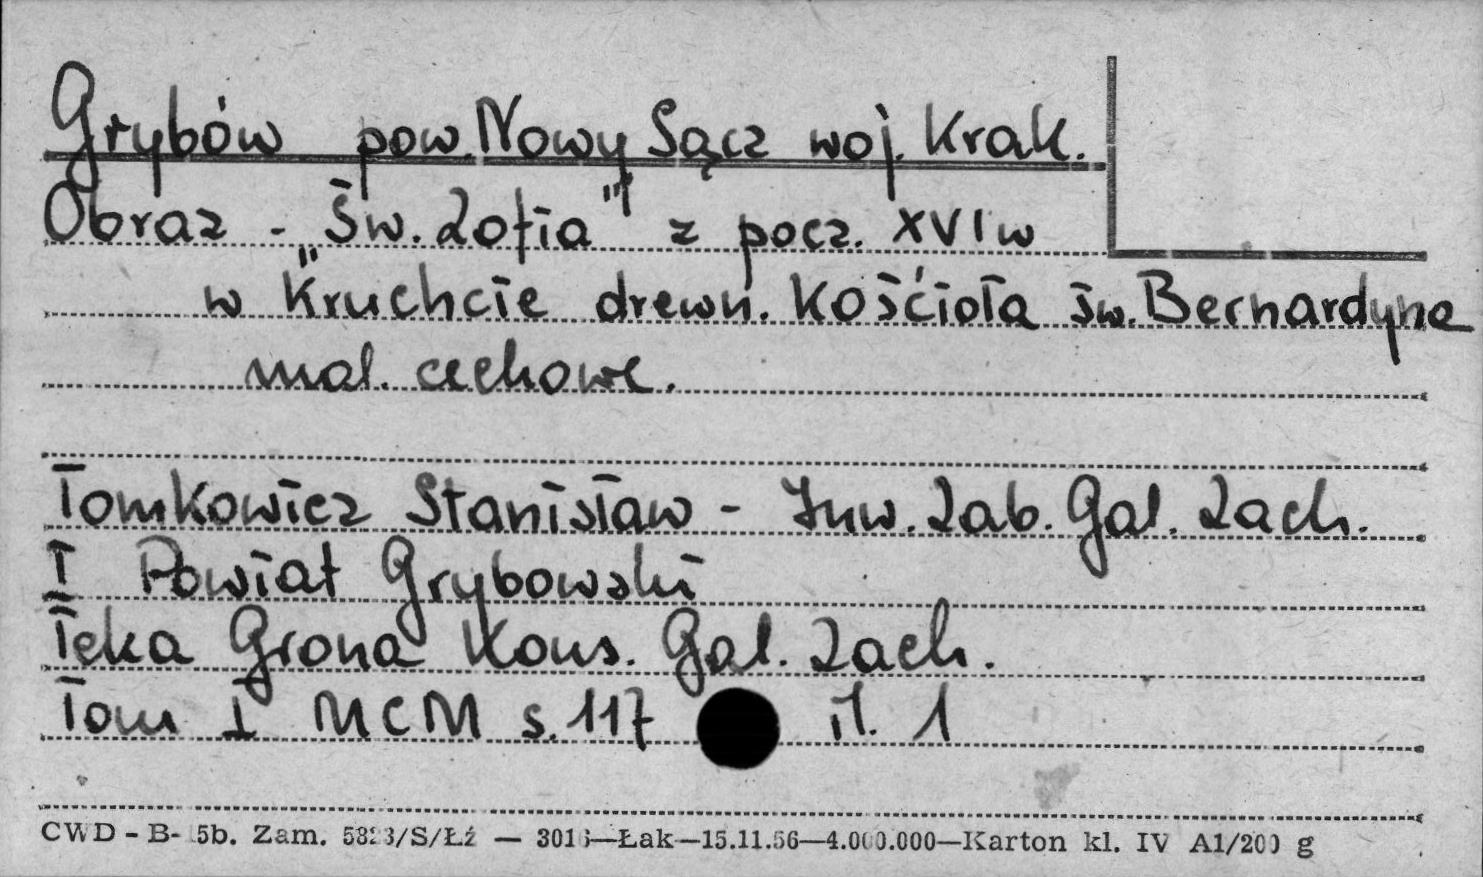 Grybów pow. Nowy Sącz woj. Krak.
Obraz - „Św. Zofia" z pocz. XVI w
w Kruchcie drewn. Kościoła św. Bernardyna
mal. cechowe.
Tomkowicz Stanisław - Inw. Zab. Gal. Zach.
I Powiat Grybowski
Teka Grona Kons. Gal. Zach.
Tom I MCM s. 117 il. 1
CWD - B- 5b. Zam. 5823/S/Łź — 3016—Łak—15.11.56—4.000.000—Karton kl. IV A1/200 g